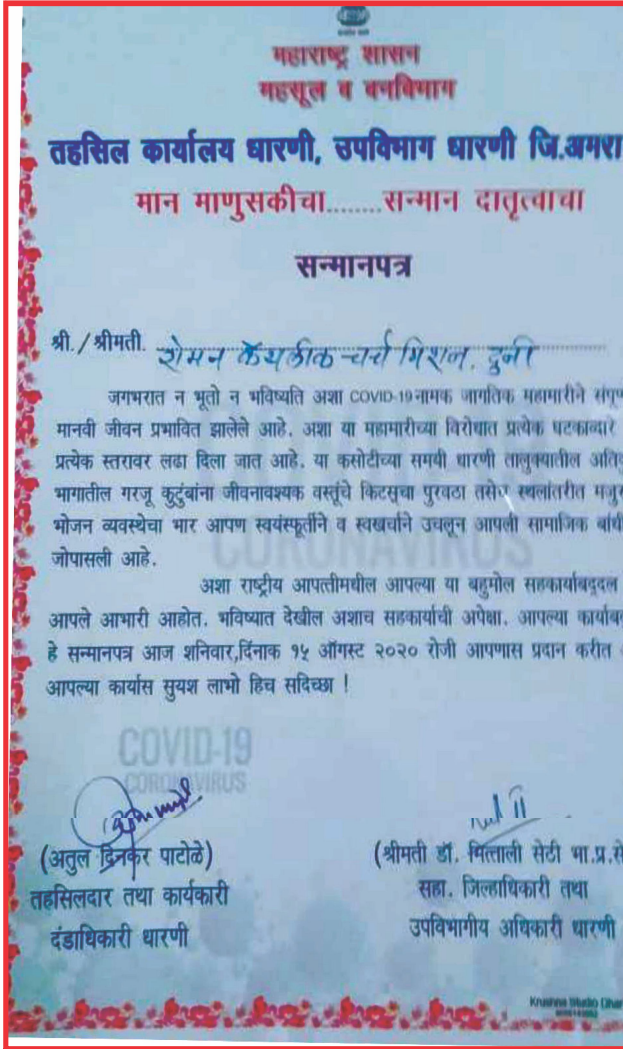 महाराष्ट्र शासन
महसूल व वनविभाग
तहसिल कार्यालय धारणी, उपविभाग धारणी जि.अमरा
मान माणुसकीचा........सन्मान दातृत्वाचा
सन्मानपत्र
श्री./श्रीमती. रोमन कॅथलीक चर्च मिशन, दुनी
जगभरात न भूतो न भविष्यति अशा COVID-19 नामक जागतिक महामारीने संपूण
मानवी जीवन प्रभावित झालेले आहे. अशा या महामारीच्या विरोधात प्रत्येक घटकाव्दारे
प्रत्येक स्तरावर लढा दिला जात आहे. या कसोटीच्या समयी धारणी तालुक्यातील अति
भागातील गरजू कुटुंबांना जीवनावश्यक वस्तूंचे किटसुचा पुरवठा तसेच स्थलांतरीत मजु
भोजन व्यवस्थेचा भार आपण स्वयंस्फूर्तीने व स्वखर्चाने उचलून आपली सामाजिक बांधी
जोपासली आहे.
अशा राष्ट्रीय आपत्तीमधील आपल्या या बहुमोल सहकार्याबद्दल
आपले आभारी आहोत. भविष्यात देखील अशाच सहकार्याची अपेक्षा. आपल्या कार्याब
हे सन्मानपत्र आज शनिवार,दिंनाक १५ ऑगस्ट २०२० रोजी आपणास प्रदान करीत
आपल्या कार्यास सुयश लाभो हिच सदिच्छा !
COVID-19
CORONAVIRUS
(अतुल दिनकर पाटोळे)
तहसिलदार तथा कार्यकारी
दंडाधिकारी धारणी
(श्रीमती डॉ. मित्ताली सेठी भा.प्र.से
सहा. जिल्हाधिकारी तथा
उपविभागीय अधिकारी धारणी
Krushna Studio Dhar